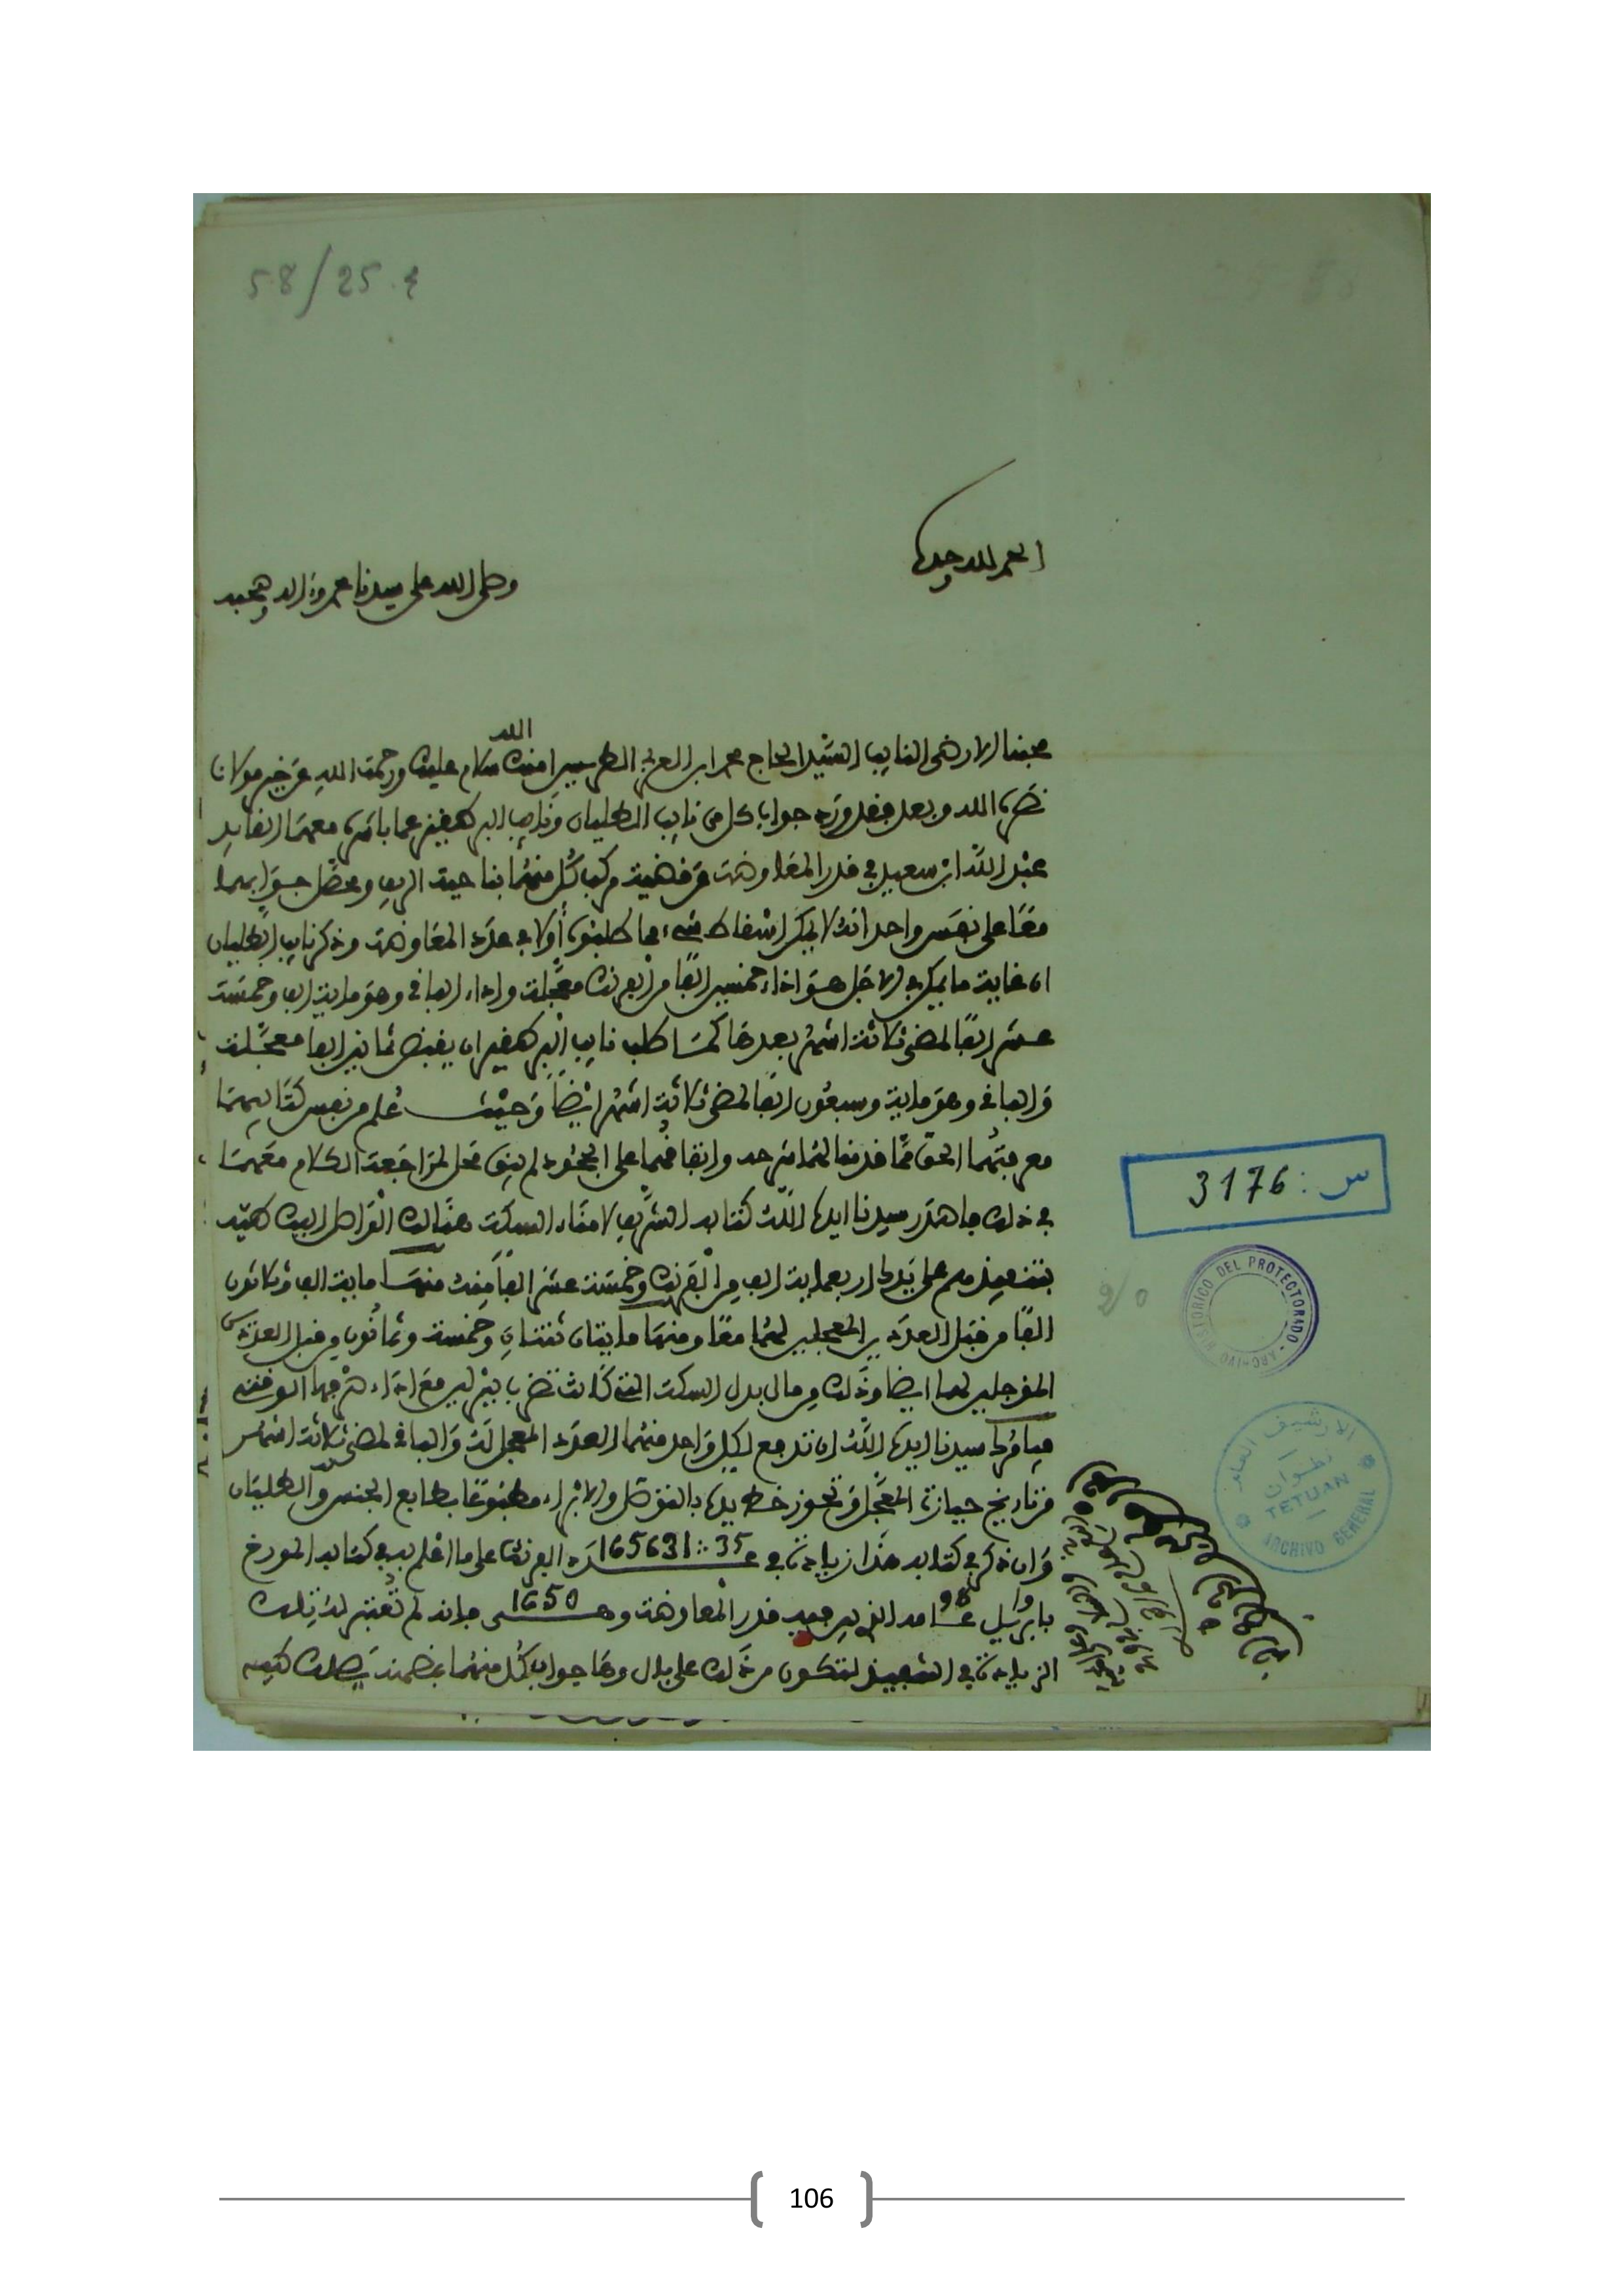 58/25.4
الحمد لله وحده
وصلى الله على سيدنا محمد وءاله وصحبه
محبنا الارضى النايب السيد الحاج محمد ابن العربي الطريس امنك الله سلام عليك ورحمت الله عن خير مولانا
نصره الله وبعد فقد ورد جواب كل من نايب الطليان ونايب البرطقيز عما باشره معهما القايد
عبد الله ابن سعيد في قدر المعاوضة عن قضية مركب كل منهما بناحية الريف ومحصل جوابهما
معا على نفس واحد انه لا يمكن اسقاط شيء مما طلبوه أولا في عدد المعاوضة وذكر نايب الطليان
ان غاية ما يمكن في الاجل هو اداء خمسين الفا من الفرنك معجلة واداء الباقي وهو ماية الف وخمسة
عشر الفا لمضي ثلاثة اشهر بعدها كما طلب نايب البرطقيز ان يقبض ثمانين الفا معجلة
والباقي وهو ماية وسبعون الفا لمضي ثلاثة اشهر ايضا وحيث علم من نفس كتابيهما
معرفتهما الحق مما قدمنا لهما شرحه واتفاقهما على الجحود لم يبق محل لمراجعة الكلام معهما
في ذلك فاصدر سيدنا ايده الله كتابه الشريف لامناء السكة هنالك الواصل اليك طيه
بتنفيذهم على يدك اربعماية الف من الفرنك وخمسة عشر الفا منه منها ماية الف وثلاثون
الفا من قبل العددين المعجلين لهما معا ومنها مايتان ثنتان وخمسة وثمانون من قبل العددين
المؤجلين لهما ايضا وذلك من مال بدل السكة التي كانت تضرب ببرلين مع اداء صرفها الوقتي
فيامرك سيدنا ايده الله ان تدفع لكل واحد منهما العدد المعجل له والباقي لمضي ثلاثة اشهر
من تاريخ حيازة المعجل وتحوز خط يده بالتوصل والابراء مطبوعا بطابع الجنس والطليان
وان ذكر في كتابه هذا زيادة في عدد 165631:35 الفرنك على ما اعلم به في كتابه المورخ
بابريل عام 96 الذي فيه قدر المعاوضة وهي 1650 فانه لم تعتبر له تلك
الزيادة في التنفيذ لتكون من ذلك على بال وها جواب كل منهما بضمنه يصلك طيه
س : 3176
ARCHIVO HISTORICO DEL PROTECTORADO
الارشيف العام
تطوان
TETUAN
ARCHIVO GENERAL
106